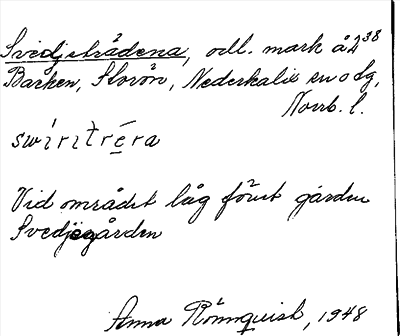 Svedjeträdena, odl. mark å 2³⁸
Barken, Storön, Nederkalix sn o lg,
Norrb. l.
swíritréra
Vid området låg förut gården
Svedjegården
Anna Rönnquist, 1948